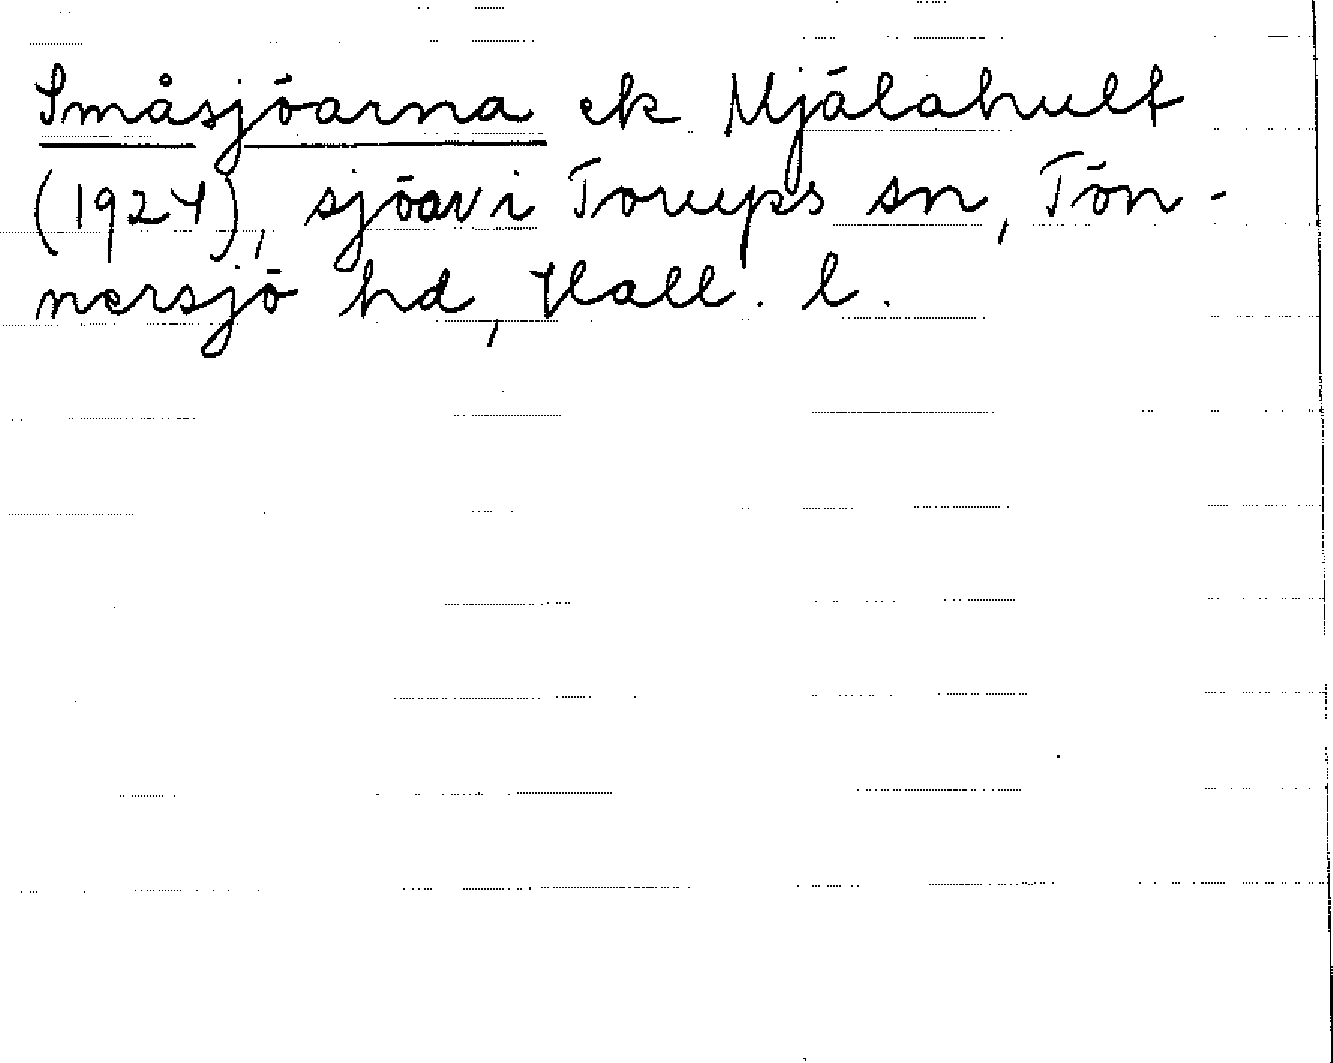 Småsjöarna ek Mjälahult
(1924), sjöar i Torups sn, Tön-
nersjö hd, Hall. l.